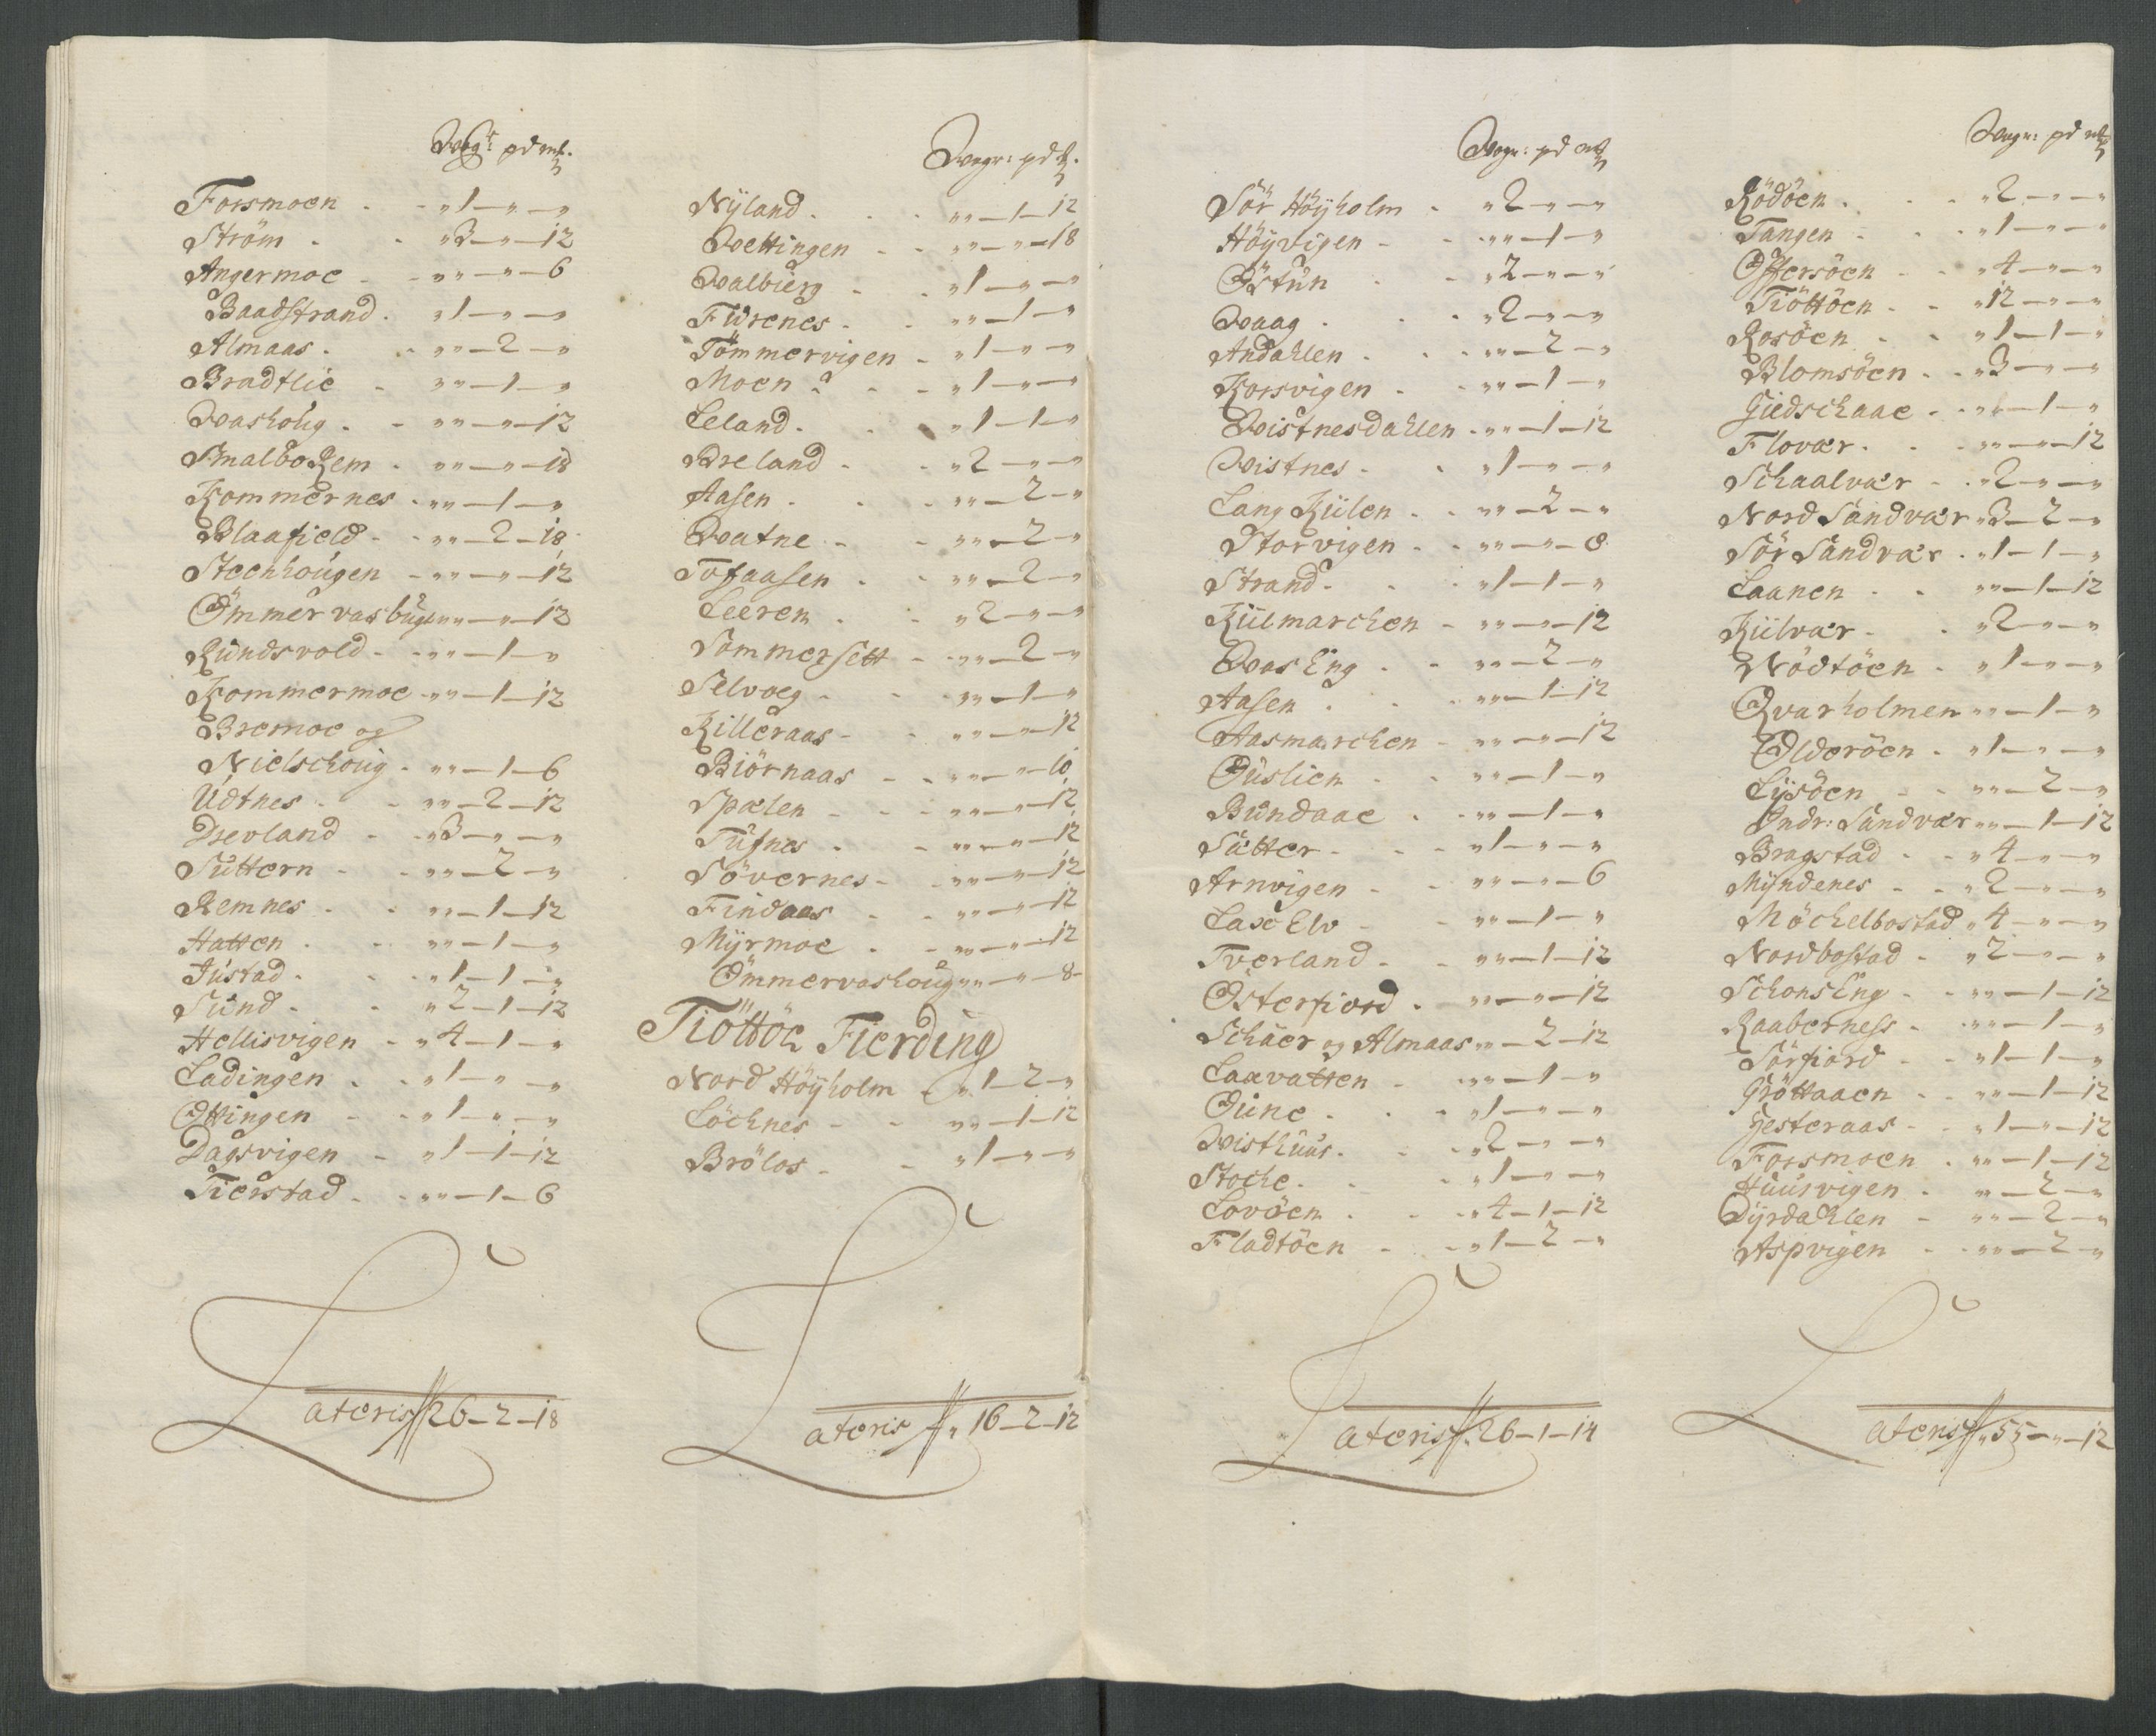 Wog: pd mk.
Forsmoen . . „ 1 — „ — „
Ström . . „ 3 — „ — 12
Angermoe - . „ „ — „ — 6
Baadstrand . „ 1 — „ — „
Almaas . . „ „ — 2 — „
Bradtlie - „ „ — 1 — „
Washoug . - „ „ — „ — 12
Smalbo Rem . „ „ — „ — 18
Kommernes . „ „ — 1 — „
Blaafield - . „ „ — 2 — 18
Steenhougen - „ „ — „ — 12
Ömmervasbugt „ „ — „ — 12
Rundsvold - . „ „ — 1 — „
Kommermoe - „ „ — 1 — 12
Bremoe og
Nielschoug . „ „ — 1 — 6
Udtnes . - „ „ — 2 — 12
Drevland - . „ 3 — „ — „
Suttern - . „ „ — 2 — „
Remnes . . „ „ — 1 — 12
Hatten . . „ „ — 1 — „
Justad . . „ 1 — 1 — „
Sund . . „ 2 — 1 — 12
Hellisvigen - „ 4 — 1 — „
Ladingen . . „ 1 — „ — „
Ottingen - . „ 1 — „ — „
Dagsvigen - „ 1 — 1 — 12
Tierstad . . „ „ — 1 — 6
Lateris 26 — 2 — 18
Wogr: pd
Nÿland . . . „ „ — 1 — 12
Wettingen - . „ „ — „ — 18
Walbierg - . „ 1 — „ — „
Furenes . . „ „ — 1 — „
Tömmervigen - „ 1 — „ — „
Moen . . „ 1 — „ — „
Leland . . „ 1 — 1 — „
Breland - . „ 2 — „ — „
Aasen . . . „ „ — 2 — „
Watne - - „ „ — 2 — „
Tofaasen . . „ „ — 2 — „
Leeren . . „ 2 — „ — „
Sommersett - . „ „ — 2 — „
Selvoeg - . „ „ — 1 — „
Killeraas - . „ „ — „ — 12
Biörnaas - . „ „ — „ — 10
Spælen - . „ „ — „ — 12
Tufnes . - „ „ — „ — 12
Sövernes - . „ „ — „ — 12
Findaas . - „ „ — „ — 12
Mÿrmoe . - „ „ — „ — 12
Ömmervashoug „ „ — „ — 8
Tiöttöe Fierding
Nord Höÿholm - „ 1 — 2 — „
Löchnes - - „ „ — 1 — 12
Brölos - - „ 1 — „ — „
Lateris „ 16 — 2 — 12
Wogr: pd mk
Sör Höÿholm . „ 2 — „ — „
Höÿvigen - . „ „ — 1 — „
Östun . - „ 2 — „ — „
Waag . . „ 2 — „ — „
Andahlen . . „ „ — 2 — „
Korsvigen . . „ „ — 1 — „
Wistnesdahlen . „ „ — 1 — 12
Wistnes . . „ 1 — „ — „
Lang Kiilen . . „ „ — 2 — „
Storvigen . . „ „ — „ — 8
Strand . . „ 1 — 1 — „
Kiilmarchen - „ „ — „ — 12
Was Eng . . „ „ — 2 — „
Aasen . . „ „ — 1 — 12
Aasmarchen - „ „ — „ — 12
Öuslien . . „ „ — 1 — „
Bundaae . . „ „ — 1 — „
Sætter - . „ 1 — „ — „
Arnvigen - . „ „ — „ — 6
Laxe Elv - - „ „ — 1 — „
Tverland - - „ „ — 1 — 12
Österfiord . „ „ — „ — 12
Schaer og Almaas „ „ — 2 — 12
Laxvatten - . „ „ — 1 — „
Öune . . „ 1 — „ — „
Wisthuus . . „ 2 — „ — „
Stoche . . „ 1 — „ — „
Lovöen . . „ 4 — 1 — 12
Fladtöen - . „ 1 — 2 — „
Lateris „ 26 — 1 — 14
Wogr: pd mk
Rödöen . . „ 2 — „ — „
Tangen - . „ 1 — „ — „
Offersöen - . „ 4 — „ — „
Tiöttöen - . „ 12 — „ — „
Rosöen . . „ 1 — 1 — „
Blomsöen . . „ 3 — „ — „
Giedschaae . . „ „ — 1 — „
Flovær . . . „ „ — „ — 12
Schaalvær - . „ 2 — „ — „
Nord Sandvær „ 3 — 2 — „
Sör Sandvær . „ 1 — 1 — „
Laanen . . „ „ — 1 — 12
Kiilvær - . „ 2 — „ — „
Nödtöen . . „ 1 — „ — „
Qvarholmen „ „ — 1 — „
Olderöen . „ 1 — „ — „
Lÿsöen . . „ „ — 2 — „
Indr: Sundvær „ „ — 1 — 12
Bragstad . . „ 4 — „ — „
Mÿndenes - . „ 2 — „ — „
Möchelbostad „ 4 — „ — „
Nordbostad . „ 2 — „ — „
Schons Eng . . „ „ — 1 — 12
Raaberness . „ „ — 1 — „
Sörfiord . - „ 1 — 1 — „
Gröttaaen . „ „ — 1 — 12
Gesteraas - . „ 1 — „ — 12
Forsmoen . „ „ — 1 — 12
Huusvigen . „ „ — 2 — „
Dÿrdahlen - „ „ — 2 — „
Aspvigen . . „ „ — 2 — „
Lateris „ 55 — „ — 12